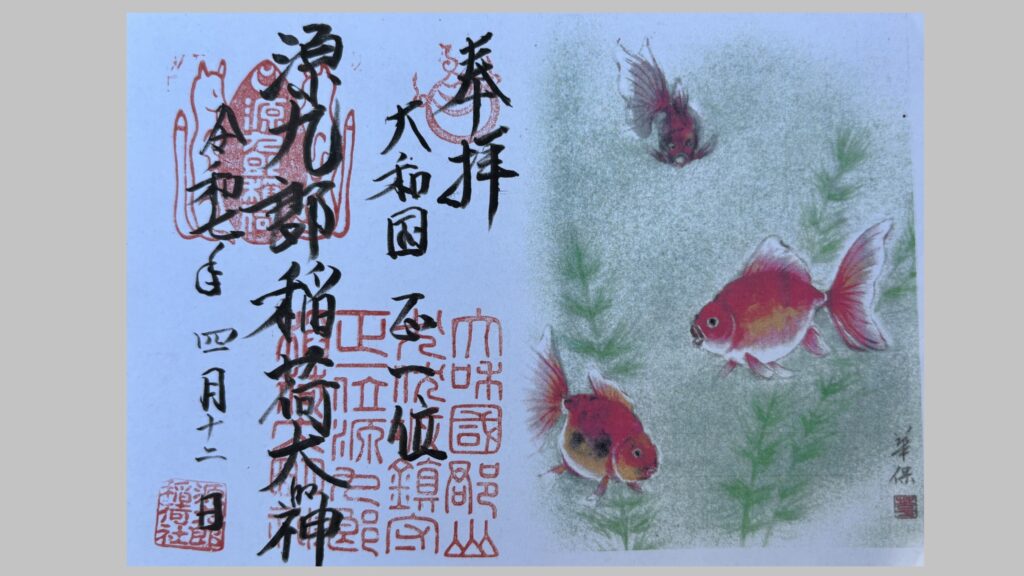 華保
奉拝
大和国 正一位
源九郎稲荷大神
令和七年 四月十二日
大和國郡山
鎮守
正一位源九郎
源九郎
稲荷社